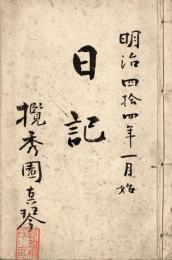 明治四拾四年一月始
日記
攬秀園真琴